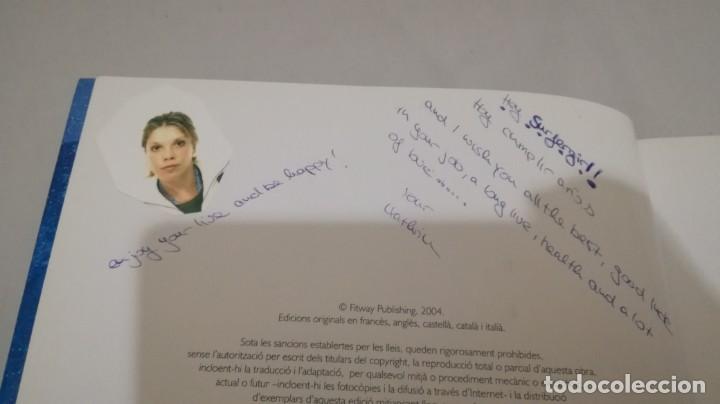 Hey Surfergirl!
Hoy cumplir años
and I wish you all the best, good luck
in your job, a long live, health and a lot
of love......
Your
Kathrin
enjoy your live and be happy!
© Fitway Publishing, 2004.
Edicions originals en francès, anglès, castellà, català i italià.
Sota les sancions establertes per les lleis, queden rigorosament prohibides,
sense l'autorització per escrit dels titulars del copyright, la reproducció total o parcial d'aquesta obra,
incloent-hi la traducció i l'adaptació, per qualsevol mitjà o procediment mecànic o
actual o futur –incloent-hi les fotocòpies i la difusió a través d'Internet– i la distribució
d'exemplars d'aquesta edició mitjançant
todocoleccion